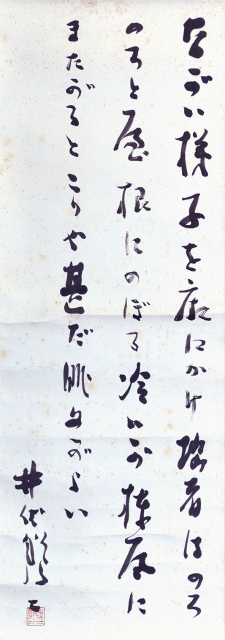 ながい梯子を廂にかけ拙者はのろ
のろと屋根にのぼる冷たが棟瓦に
またがるとこりや甚だ眺めがよい
井伏鱒二